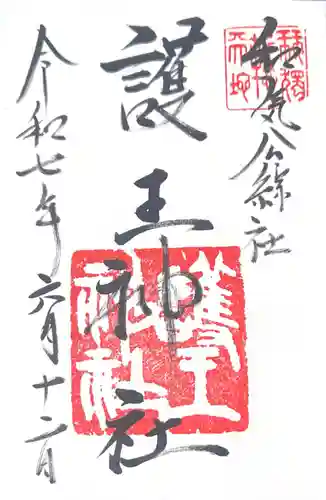 和気公綜社
護王神社
護王神社
令和七年六月十二日